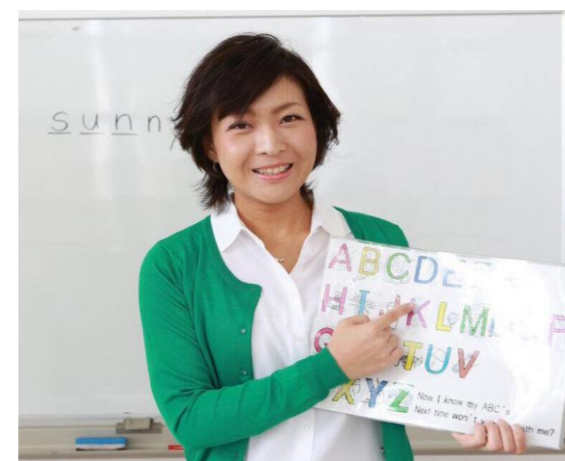 sunn
ABCDE
HIJKLM P
TUV
XYZ
Now I know my ABC's
Next time won't with me?